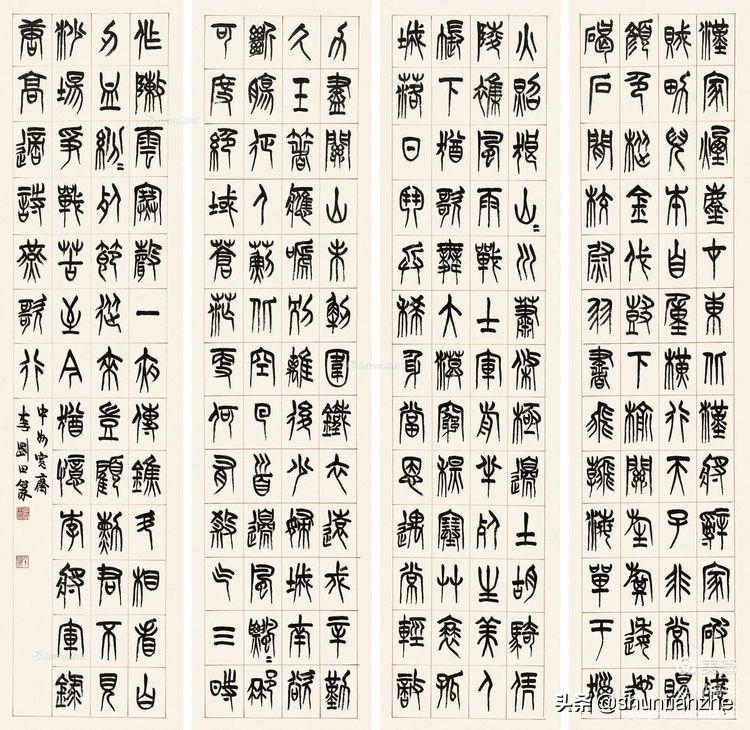 漢家煙塵在東北漢將辭家破殘
賊男兒本自重橫行天子非常賜
顏色摐金伐鼓下榆關旌旆逶迤
碣石間校尉羽書飛瀚海單于獵
火照狼山=川蕭條極邊土胡騎憑
陵雜風雨戰士軍前半死生美人
帳下猶歌舞大漠窮秋塞艸衰孤
城落日鬥兵稀身當恩遇常輕敵
力盡關山未解圍鐵衣遠戍辛勤
久玉箸應啼別離後少婦城南欲
斷腸征人薊北空回首邊風飄=那
可度絕域蒼茫更何有殺氣三時
作陣雲寒聲一夜傳鐎斗相看白
刃血紛=死節從來豈顧勳君不見
沙場爭戰苦至今猶憶李將軍錄
唐高適詩燕歌行
中州寬齋
李剛田篆
美篇
头条 @shuntianzhe